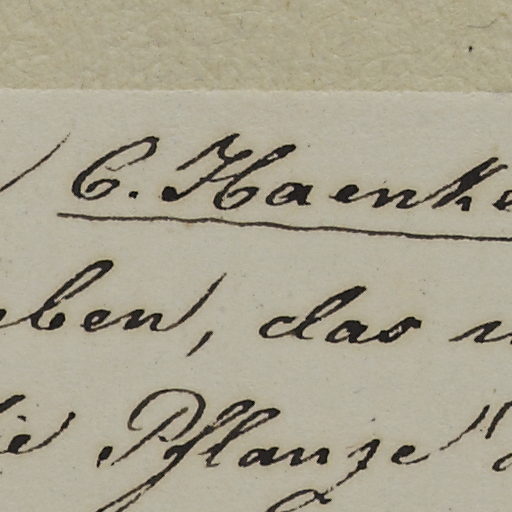 C. Haenke
eben, das
die Pflanze